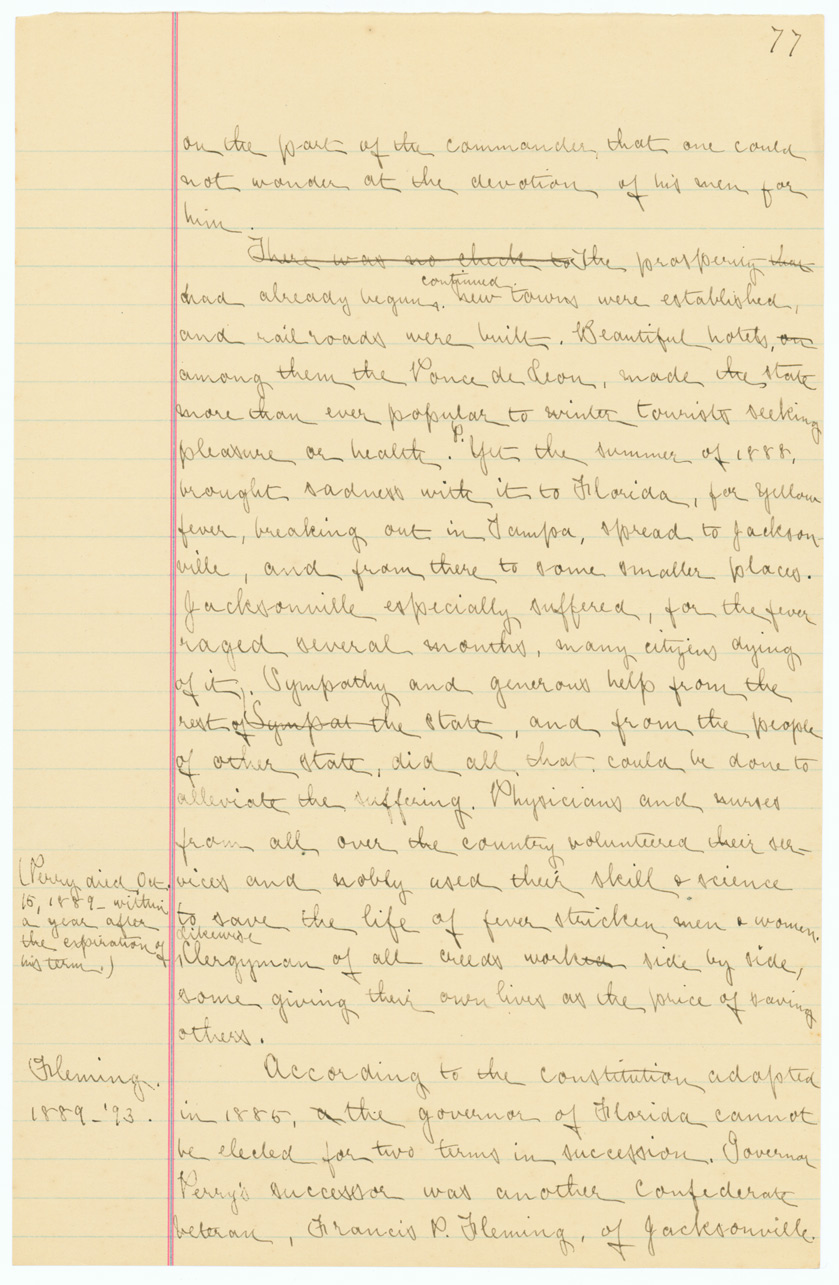 77
on the part of the commander, that one could
not wonder at the devotion of his men for
him.
There was no check to The prosperity that
had already begun, continued. New towns were established,
and railroads were built. Beautiful hotels, on
among them the Ponce de Leon, made the state
more than ever popular to winter tourists seeking
pleasure or health. P. Yet the summer of 1888,
brought sadness with it to Florida, for yellow
fever, breaking out in Tampa, spread to Jackson-
ville, and from there to some smaller places.
Jacksonville especially suffered, for the fever
raged several months, many citizens dying
of it. Sympathy and generous help from the
rest of Sympat the state, and from the people
of other state, did all that could be done to
alleviate the suffering. Physicians and nurses
from all over the country volunteered their ser-
vices and nobly used their skill & science
to save the life of fever stricken men & women.
Likewise
Clergyman of all creeds worked side by side,
some giving their own lives as the price of saving
others.
(Perry died Oct.
15, 1889 - within
a year after
the expiration of
his term.)
Fleming.
1889-'93.
According to the constitution adopted
in 1885, a the governor of Florida cannot
be elected for two terms in succession. Governor
Perry's successor was another Confederate
veteran, Francis P. Fleming, of Jacksonville.